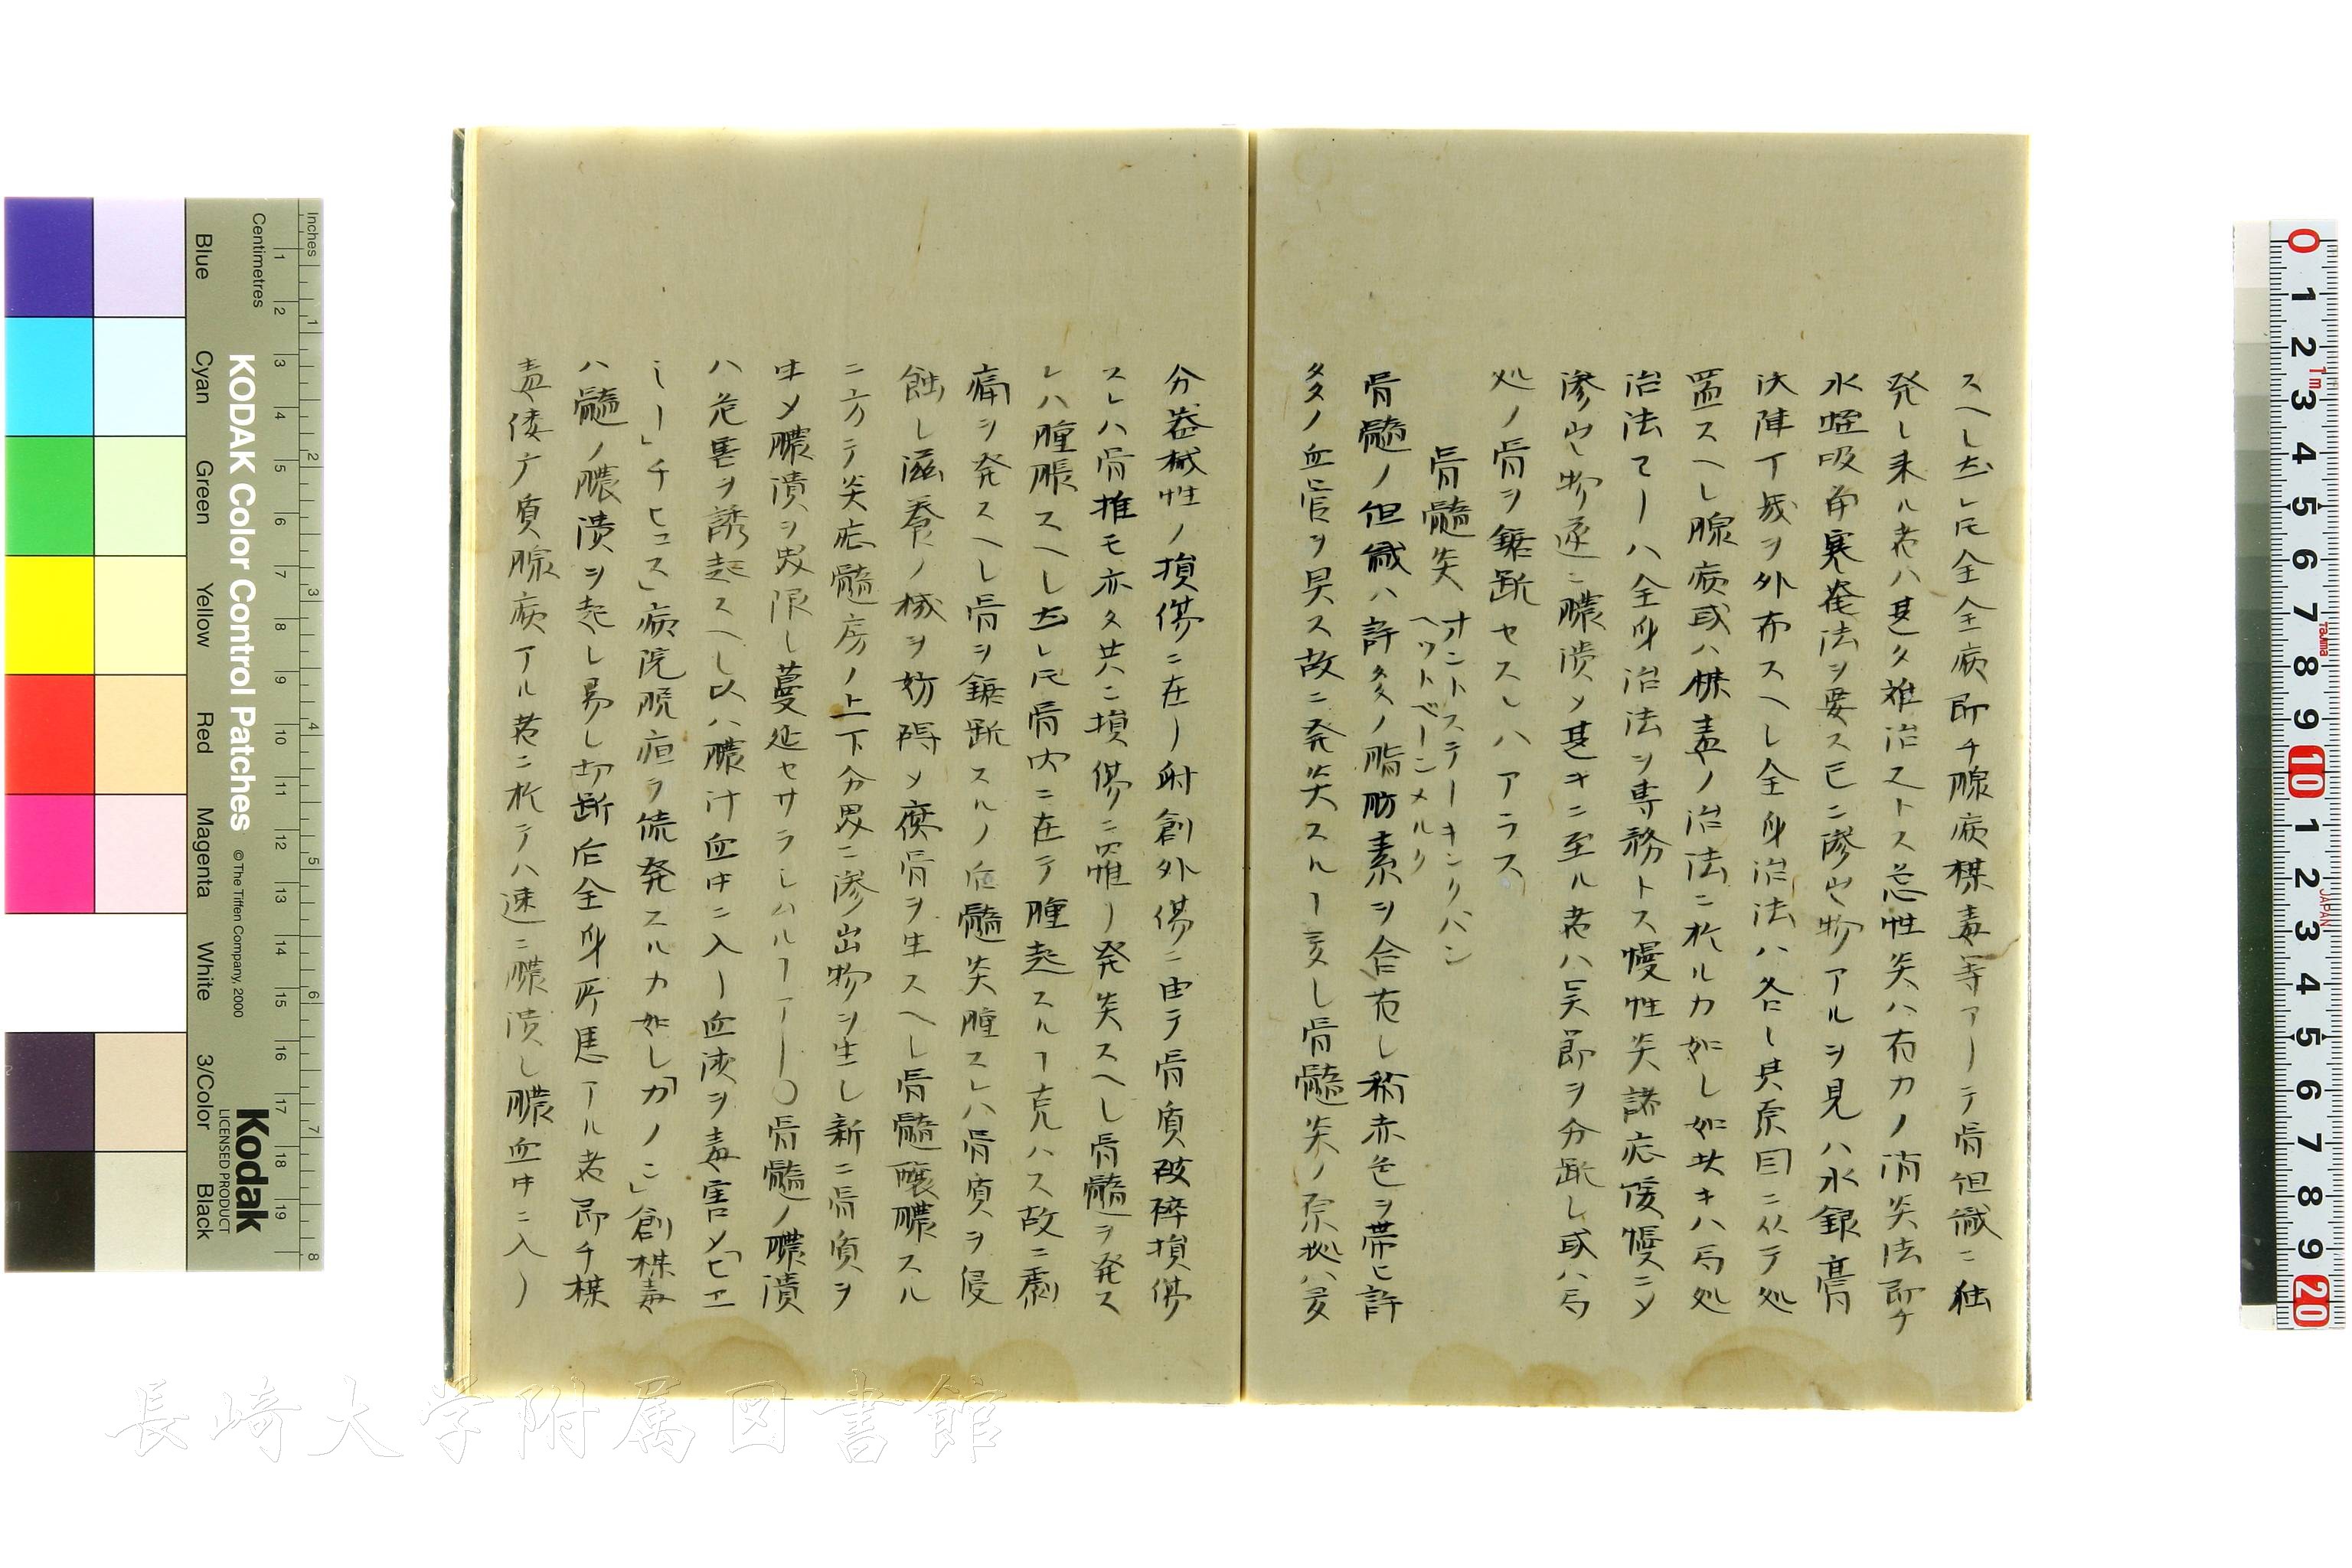 スヘし㔫レ𪜈全全病即チ腺病楳毒等アリテ骨但織ニ独
発し来ル者ハ甚タ難治ストス急性炎ハ有力ノ消炎法即チ
水蛭吸角寒罨法ヲ要ス已ニ滲出物アルヲ見ハ水銀膏
沃陣丁幾ヲ外布スヘし全身治法ハ各し其原因ニ从テ処
置スヘし腺病或ハ楳毒ノ治法ニ於ルカ如し如此キハ局処
治法ヨリハ全身治法ヲ専務トス慢性炎諸症優慢ニメ
滲出物遂ニ膿潰メ甚キニ至ル者ハ関節ヲ分断し或ハ局
処ノ骨ヲ鋸断セスんハアラス
骨髄炎 オントステーキンクハン
ヘットベーンメルク
骨髄ノ但織ハ許多ノ脂肪素ヲ含有し稍赤色ヲ帯ヒ許
多ノ血管ヲ具ス故ニ発炎スルヿ多し骨髄炎ノ原拠ハ多
分器械性ノ損傷ニ在リ射創外傷ニ由テ骨質破砕損傷
スレハ骨推モ亦タ共ニ損傷ニ罹リ発炎スヘし骨髄ヲ発ス
レハ腫脹スヘし㔫レ𪜈骨内ニ在テ腫起スルヿ克ハス故ニ劇
痛ヲ発スヘし骨ヲ鋸断スルノ后髄炎腫スレハ骨質ヲ侵
蝕し滋養ノ機ヲ妨碍メ腐骨ヲ生スヘし骨髄醸膿スル
ニ方テ炎症髄房ノ上下分界ニ滲出物ヲ生し新ニ骨質ヲ
生メ膿潰ヲ界限し蔓延セサラしムルヿアリ〇骨髄ノ膿潰
ハ危害ヲ誘起スヘし以ハ膿汁血中ニ入リ血液ヲ毒害メ「ヒエ
ミー」チヒュス」病院脱疽ヲ続発スルカ如し「カノニ」創楳毒
ハ髄ノ膿潰ヲ起し易し切断后全身所患アル者即チ楳
毒倭麻質腺病アル者ニ於テハ速ニ膿潰し膿血中ニ入リ
KODAK Color Control Patches
©The Tiffen Company, 2000
Kodak
LICENSED PRODUCT
Inches
Centimetres
Blue
Cyan
Green
Yellow
Red
Magenta
White
3/Color
Black
長崎大学附属図書館